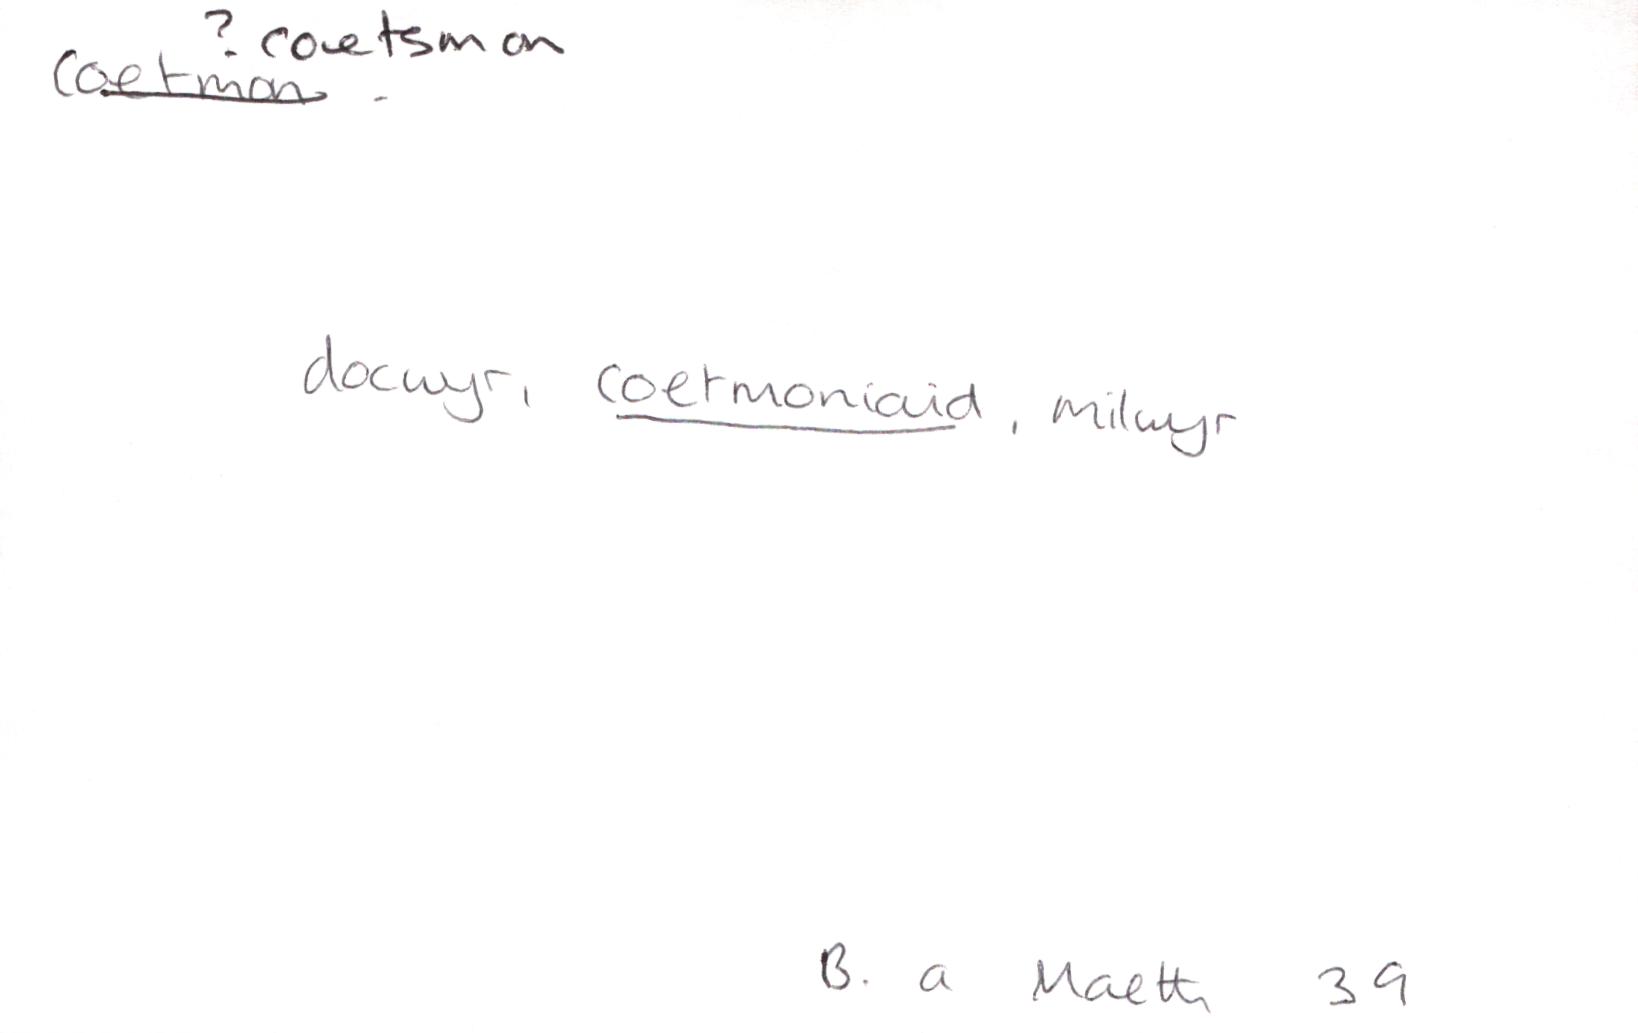 ? coetsmon
coetmon.
docwyr, coetmoniaid, milwyr
B. a Maeth 39